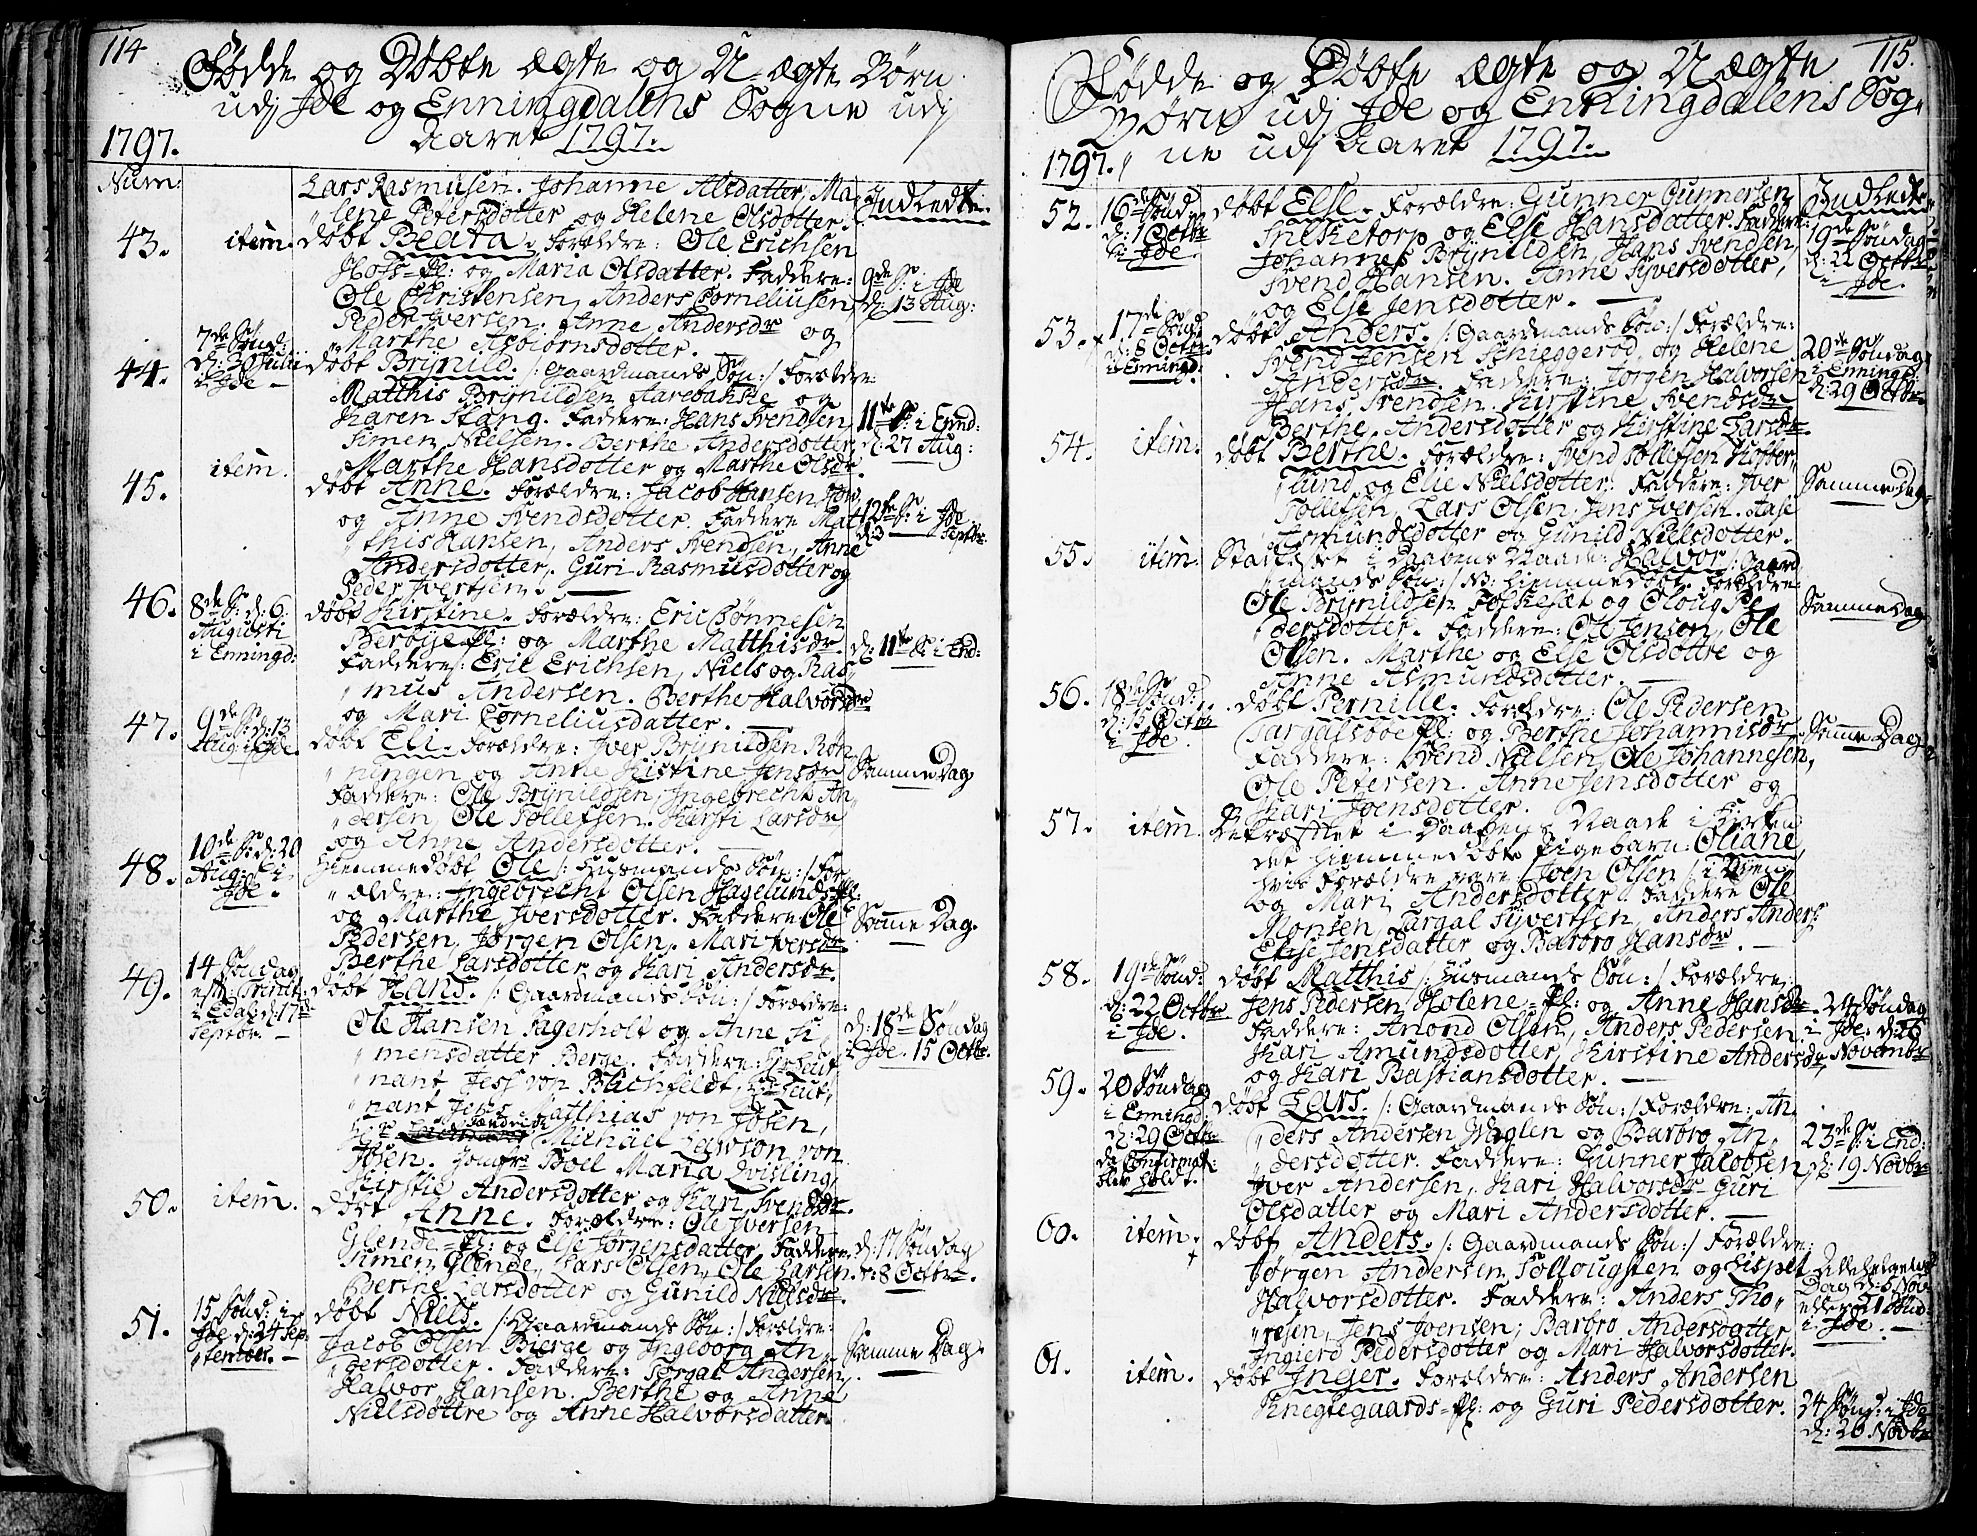 114
Fødde og Døbte ægte og U-ægte Børn
udj Jde og Enningdalens Sogne udj
Aaret 1797.
1797.
Num:
Lars Rasmusen. Johanne Alsdatter, Ma-
lene Petersdotter og Helene Olsdotter.
Indledte.
43. item. døbt Beata. Forældre: Ole Erichsen
Hofs-Pl: og Maria Olsdatter. Faddere:
Ole Christensen, Anders Corneliusen,
Peder Iversen. Anne Andersdr og
Marthe Asbiørnsdotter.
9de S: i Jde
d: 13 Aug:
44. 7de Sønd:
d: 30 Julii
i Jde -
døbt Brynild. /: Gaardmands Søn :/ Forældre
Matthis Brynildsen Aarebakke og
Karen Stang. Faddere: Hans Svendsen
Simen Nielsen. Berthe Andersdotter,
Marthe Hansdotter og Marthe Olsdr.
11te S: i Ennd:
d: 27 Aug:
45. item. døbt Anne. Forældre: Jacob Hansen
og Anne Svendsdotter. Faddere Mat-
this Hansen, Anders Svendsen, Anne
Andersdotter, Guri Rasmusdotter og
Peder Ivertsen.
12te S: i Jde
d: 3 Septbr.
46. 8de S: d: 6.
Augusti
i Enningd:
døbt Kirstine. Forældre: Eric Sønnesen
Berbye Pl: og Marthe Matthisdr.
Faddere: Eric Erichsen, Niels og Ras-
mus Andersen. Berthe Halvorsdr
og Mari Corneliusdatter.
d: 11te S: i End:
47. 9de S: d: 13
Aug: i Jde.
døbt Eli. Forældre: Iver Brynildsen Røn-
ningen og Anne Kistine Jensdr
Faddere: Ole Brynildsen, Ingebrecht An-
dersen, Ole Tollefsen. Kirsti Larsdr
og Anne Andersdotter.
Samme Dag
48. 10de S: d: 20
Aug: i
Jde.
Hiemmedøbt Ole /: Husmands Søn :/ For-
ældre: Ingebrecht Olsen Hagelunds Pl:
og Marthe Iversdotter. Faddere Ole
Pedersen, Jørgen Olsen. Mari Iversdr
Berthe Larsdotter og Kari Andersdr.
Samme Dag.
49. 14 Søndag
eft: Trinit:
i Edal d: 17de
Septbr. -
døbt Hans. /: Gaardmands Søn :/ Forældre:
Ole Hansen Fagerholt og Anne Si-
mensdatter Berge. Faddere: Hr Leut-
nant Jess von Blichfeldt, Hr Leut-
nant Jens Matthias von Jøsen,
Hr Fændric Michael Lawson von
Jøsen. Jomfr Boel Maria Qvisling,
Kirstie Andersdotter og Kari Svendsdr.
d: 18de Søndag
i Jde. 15 Octbr.
50. item. døbt Anne. Forældre: Ole Iversen
Glende-Pl: og Else Jørgensdatter. Faddere
Simen Glende, Lars Olsen, Ole Larsen.
Berthe Larsdotter og Gunild Nielsdr.
d: 17 Søndag
d: 8 Octbr.
51. 15 Sønd: i
Jde d: 24 Sep-
tember. -
døbt Niels. /: Gaardmands Søn :/ Forældre:
Jacob Olsen Bierge og Ingeborg An-
dersdotter. Faddere: Torgal Andersen,
Halvor Hansen. Berthe og Anne
Nielsdøttre og Anne Halvorsdatter.
Samme Dag.
115.
Fødde og Døbte ægte og Uægte
Børn udj Jde og Enningdalens Sog-
ne udj Aaret 1797.
1797.
Indledte
52. 16de Sønd:
d: 1 Octbr
i Jde.
døbt Else. Forældre: Gunner Gunnersen
Snekketorp og Else Hansdatter. Faddere:
Johannes Brynildsen, Hans Svendsen,
Svend Hansen. Anne Syversdotter,
og Else Jensdotter.
19de Søndag
d: 22 Octbr
i Jde.
53. 17de Sønd:
d: 8 Octbr.
i Enningd:
døbt Anders. /: Gaardmands Søn :/ Forældre:
Svend Jensen Schieggerød og Helene
Andersdr. Faddere: Jørgen Halvorsen
Hans Svendsen. Kirstine Svendsdr
Berthe Andersdotter og Kirstine Larsdr.
20de Søndag
i Enningd:
d: 29 Octbr.
54. item. døbt Berthe. Forældre: Svend Tollefsen
lund og Elie Nielsdotter. Faddere: Iver
Tollefsen, Lars Olsen, Jens Iversen. Aase
Asmundsdotter og Gunild Nielsdotter.
Samme Dag
55. item. Stadfæstet i Daabens Naade: Halvor /: Gaard-
mands Søn :/ NB: hiemmedøbt. Forældre:
Ole Brynildsen Folkesæt og Oloug Pe-
dersdotter. Faddere: Ole Jenson, Ole
Olsen. Marthe og Else Olsdøttre og
Anne Asmundsdotter.
Samme Dag
56. 18de Sønd:
d: 15 Octbr
i Jde.
døbt Pernille. Forældre: Ole Pedersen
Pl: og Berthe Johannisdr.
Faddere: Svend Nielsen, Ole Johannesen,
Ole Petersen. Anne Jensdotter og
Kari Joensdotter.
Samme Dag
57. item. Bekræftet i Daabens Naade i Kirken
det hiemmedøbte Pigebarn: Oliane,
hvis Forældre vare Joen Olsen
og Mari Andersdotter. Faddere Ole
Monsen, Targal Syvertsen, Anders Anders:
Else Jensdatter og Barbro Hansdr.
58. 19de Sønd:
d: 22 Octbr
i Jde.
døbt Matthis /: Husmands Søn :/ Forældre:
Jens Pedersen Holene-Pl: og Anne Hansdr.
Faddere: Amond Olsen, Anders Pedersen.
Kari Amundsdotter, Kirstine Andersdr,
og Kari Bastiansdotter.
24 Søndag
i Jde d: 26
Novembr
59. 20 Søndag
i Enningd:
d: 29 Octbr
da Confirmat:
blev holdt.
døbt Lars. /: Gaardmands Søn :/ Forældre: An-
ders Andersen Møglen og Barbro An-
dersdotter. Faddere: Gunner Jacobsen,
Iver Andersen, Kari Halvorsdr Guri
Olsdatter og Mari Andersdotter.
23de S: i End:
d: 19 Novbr
60. item. døbt Anders. /: Gaardmands Søn :/ Forældre:
Jørgen Andersen Tollougsten og Lispet
Halvorsdotter. Faddere: Anders Tho-
resen, Jens Joensen; Barbro Andersdotter
Ingierd Pedersdotter og Mari Halvorsdotter.
Allehelgens
Dag d: 5 Nov:
eller 21 Sønd:
i Jde.
61. item. døbt Inger. Forældre: Anders Andersen
Knegtegaards-Pl: og Guri Pedersdotter.
24 Sønd: i Jde
d: 26 Novbr